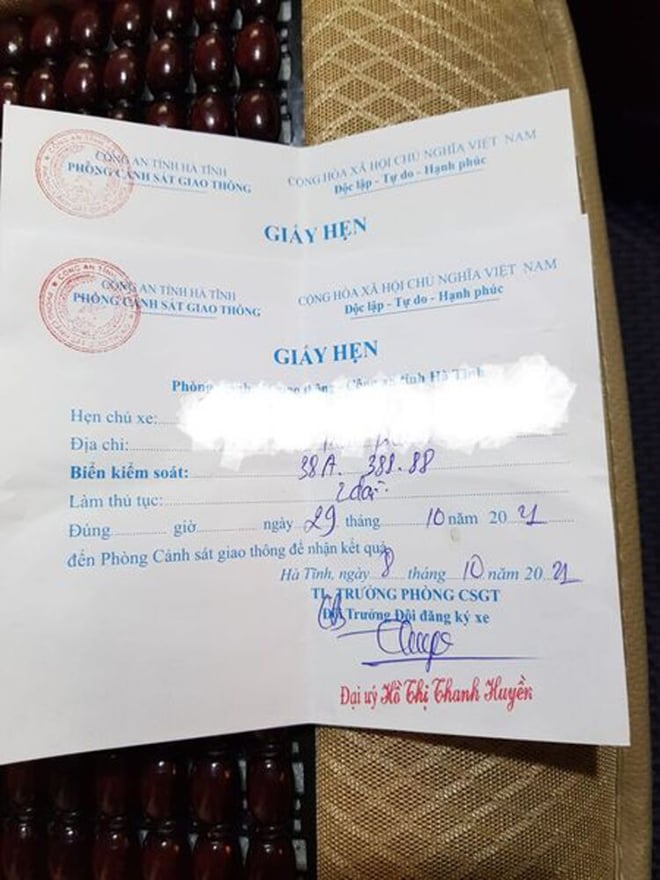 CÔNG AN TỈNH HÀ TĨNH
PHÒNG CẢNH SÁT GIAO THÔNG
CỘNG HÒA XÃ HỘI CHỦ NGHĨA VIỆT NAM
Độc lập - Tự do - Hạnh phúc
GIẤY HẸN
CÔNG AN TỈNH HÀ TĨNH
PHÒNG CẢNH SÁT GIAO THÔNG
CỘNG HÒA XÃ HỘI CHỦ NGHĨA VIỆT NAM
Độc lập - Tự do - Hạnh phúc
GIẤY HẸN
Phòng Công an tỉnh Hà Tĩnh
Hẹn chủ xe:
Địa chỉ:
Biển kiểm soát: 38A. 388.88
Làm thủ tục:
Đúng giờ ngày 29 tháng 10 năm 2021
đến Phòng Cảnh sát giao thông để nhận kết quả
Hà Tĩnh, ngày 8 tháng 10 năm 2021
TL TRƯỞNG PHÒNG CSGT
Đội Trưởng Đội đăng ký xe
Đại uý Hồ Thị Thanh Huyền